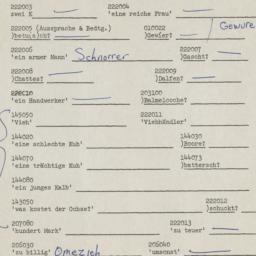 222003 222004
zwei K 'eine reiche Frau'
222005 (Aussprache & Bedtg.) 010022 Gewure
)betu:a)ch? )Gewier?
222006 222007
'ein armer Mann' Schnorrer )Gascht?
222008 222009
)Chattes? )Dalfen?
222010 203100
'ein Handwerker' )Balmelooche?
145050 222011
'Vieh' 'Viehhändler'
144020 144030
'eine schlechte Kuh' )Boore?
144070 144073
'eine trächtige Kuh' )battersch?
144080
'ein junges Kalb'
143050 222012
'was kostet der Ochse?' )schuckt?
207080 222013
'hundert Mark' 'zu teuer'
206030 206040
'zu billig' Omezich 'umsonst'